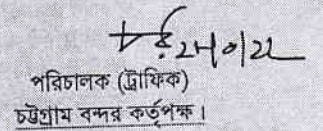 পরিচালক (ট্রাফিক)
চট্টগ্রাম বন্দর কর্তৃপক্ষ।